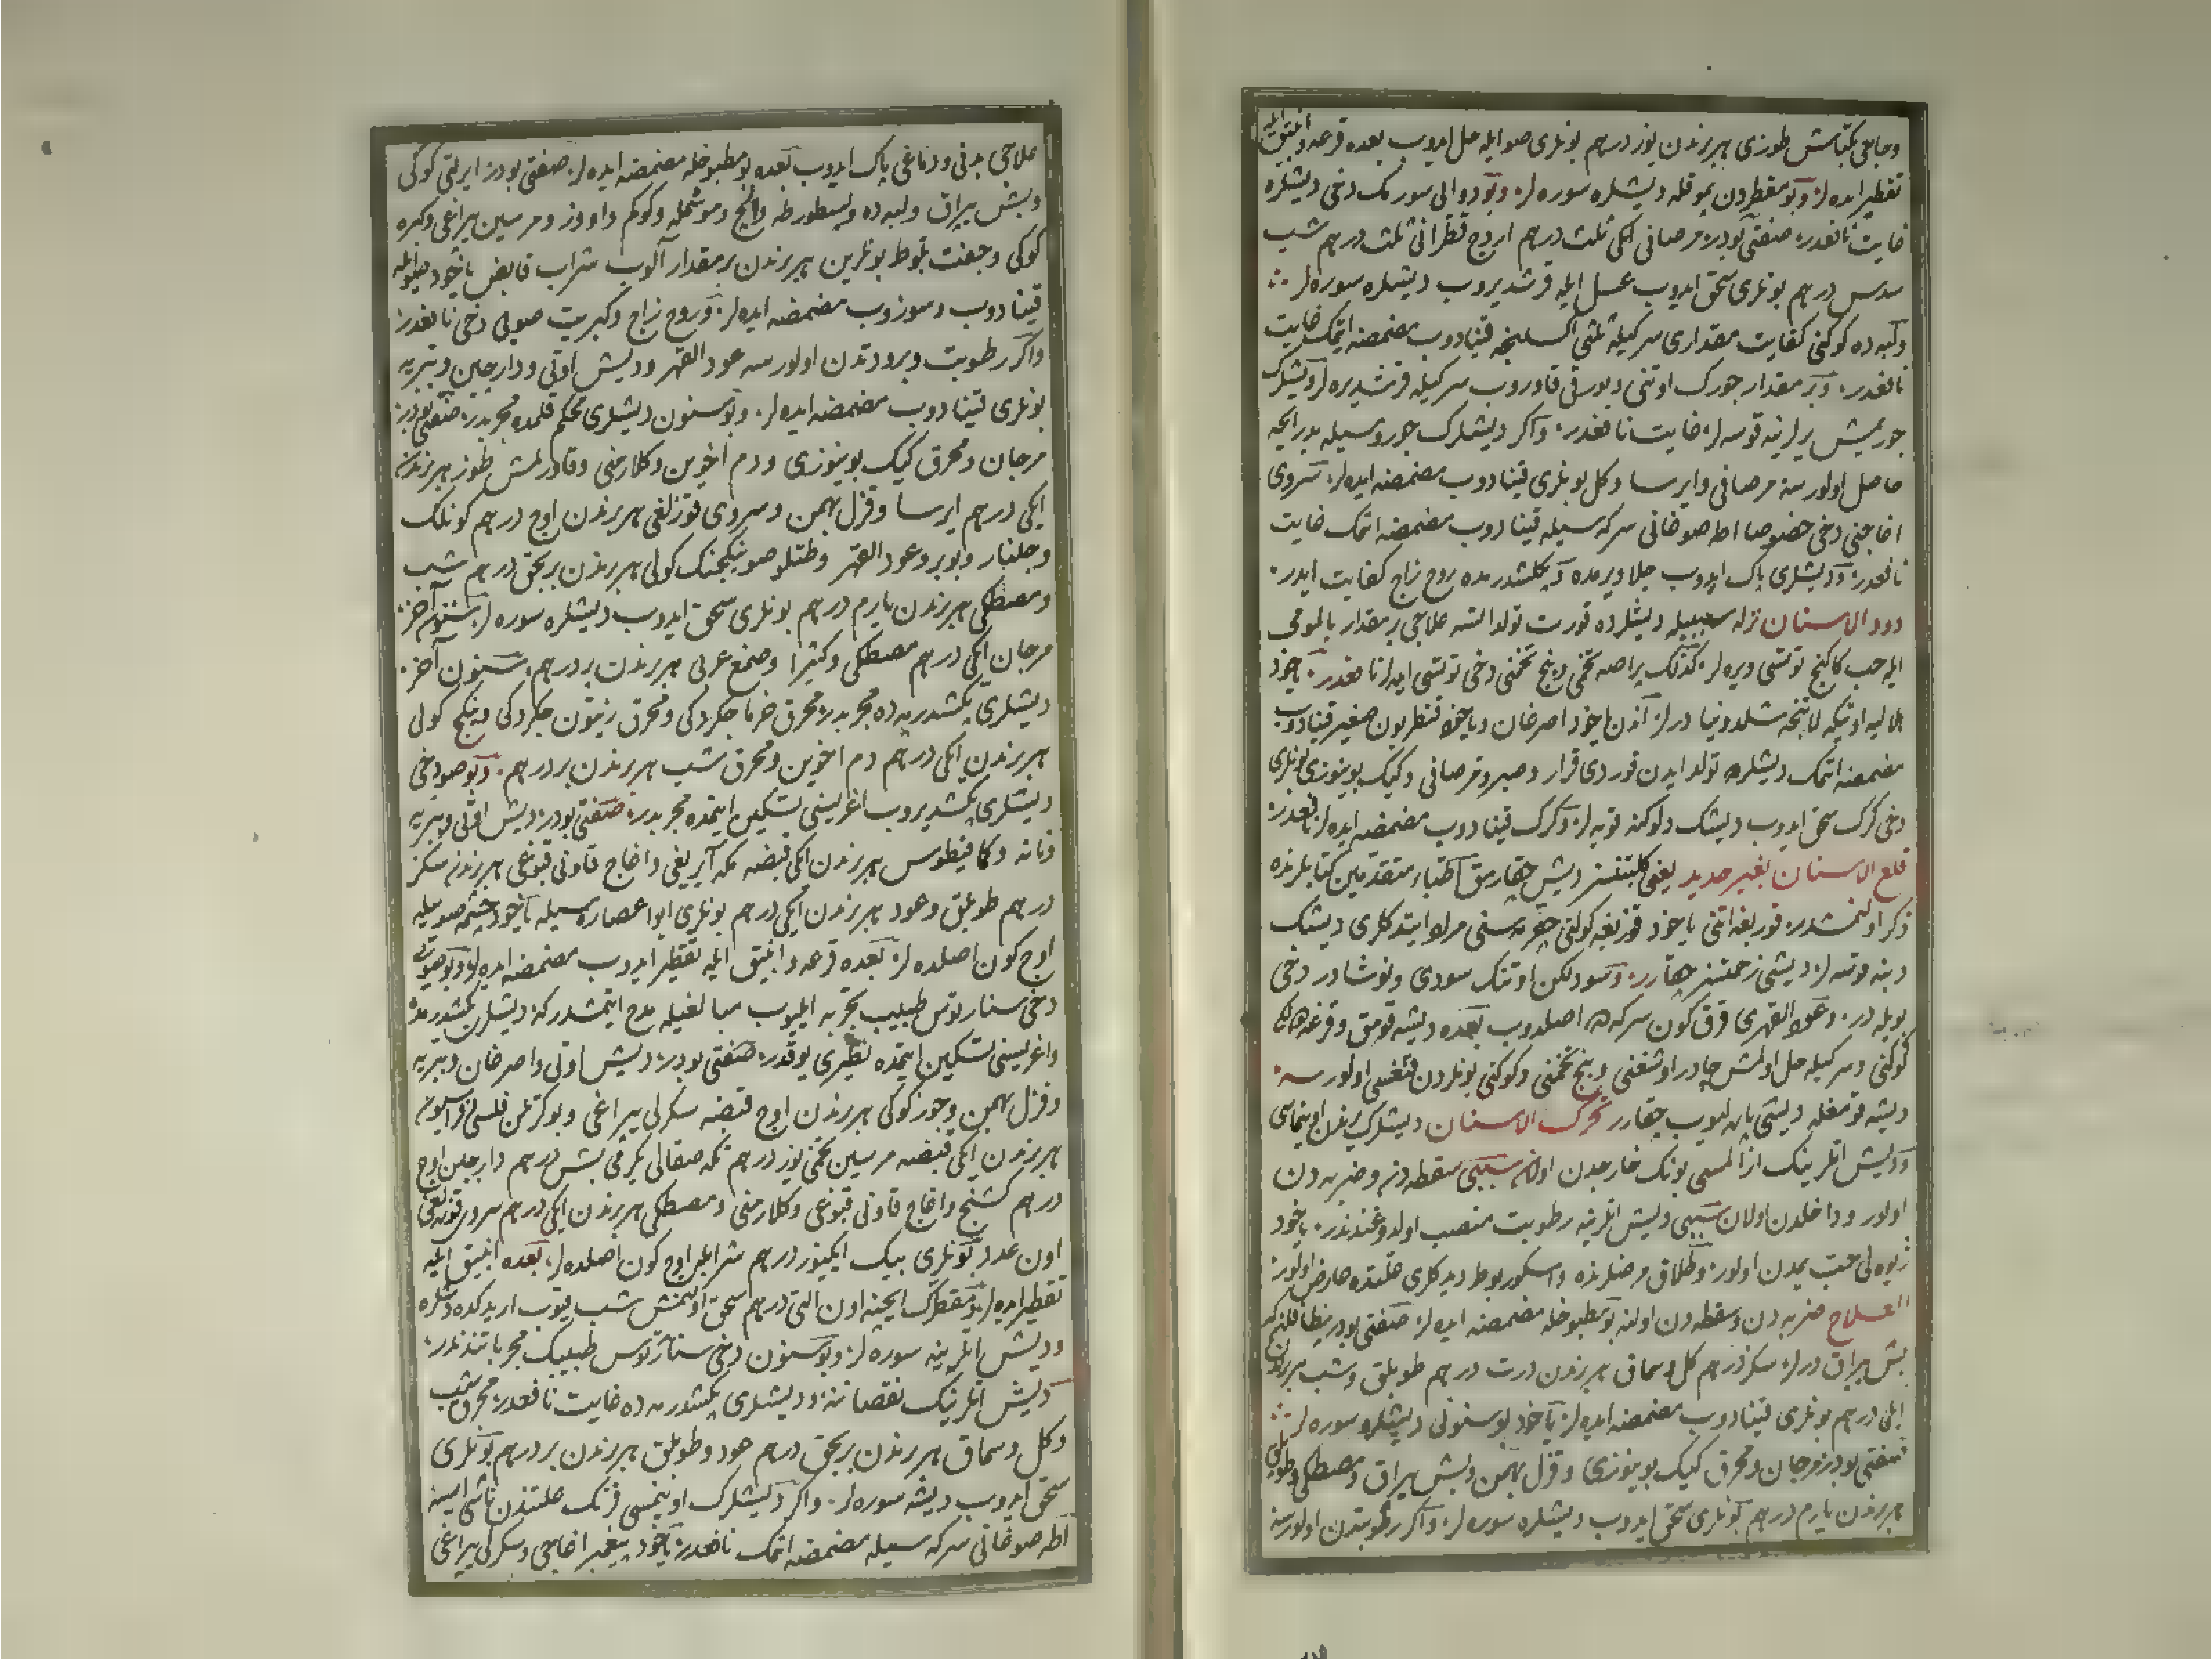 وجامعی بکتاشش طوزی هر برندن یوز درهم بونلری صو ایله حل ایدوب بعده قرعه وانبیق ایله
تقطیر ایده لر وبو مقطردن پموقله دیشلره سوره لر وبو دوالی سورمک دخی دیشلره
غایت نافعدر صنعتی بودر مرصافی ایکی ثلث درهم اردج قطرانی ثلث درهم شب
سدس درهم بونلری سحق ایدوب عسل ایله قرشدیروب دیشلره سوره لر
وکبه ده کوکنی کفایت مقداری سرکیله ثلثی اکسلنجه قینادوب مضمضه ایتمک غایت
نافعدر وبر مقدار چورک اوتنی قاوروب سرکیله قرشدیره لر ودیشلرک
چوریمش یرلرینه قویه لر غایت نافعدر واکر دیشلرک چوروسیله بد رایحه
حاصل اولورسه مرصافی وایرسا وکل بونلری قینادوب مضمضه ایده لر سروی
اغاجنی دخی خصوصا اطه صوغانی سرکه سیله قینادوب مضمضه ایتمک غایت
نافعدر ودیشلری پاک ایدوب جلا ویرمده وپکشدرمده روح زاج کفایت ایدر
دود الاسنان نزله سببیله دیشلرده قورت تولد ایتسه علاجی بر مقدار بالمومی
ایله حب کاکنج توتسی ویره لر کذلک پراصه تخمی وبنج تخمنی دخی توتسی ایده لر نافعدر یاخود
مضمضه ایتمک دیشلرده تولد ایدن قوردی قرار وصبر ومرصافی وکیک بوینوزی بونلری
دخی کرک سحق ایدوب دیشک دلوکنه قویه لر وکرک قینادوب مضمضه ایده لر نافعدر
قلع الاسنان بغیر حدید یعنی کلبتنسز دیش چقارمق اطباء متقدمین کتابلرنده
ذکر اولنمشدر قوربغه اتنی یاخود قوربغه کولنی چقرمه سنی مراد ایتدکلری دیشک
دیبنه قوسه لر دیشی زحمتسز چقارر وسودلکن اوتنک سودی ونوشادر دخی
بویله در وعود القهری قرق کون سرکه ده اصلدوب بعده دیشه قومق وقرغه دلن
کوکنی وسرکیله حل اولمش چادر اوشغنی وبنج تخمنی وکوکنی بونلردن قنغیسی اولورسه
دیشه قومغله دیشی پاره لیوب چقارر تحرک الاسنان دیشلرک یرندن اوینماسی
ودیش اتلرینک ازالمسی بونک خارجدن اولان سببی سقطه دن وضربه دن
اولور وداخلدن اولان سببی دیش اتلرینه رطوبت منصب اولدوغندندر یاخود
العلاج ضربه دن وسقطه دن اولنه بو مطبوخله مضمضه ایده لر صنعتی بودر
بش پیراق درلر سکز درهم کل وسماق هر برندن درت درهم طوپلق وشب هر برندن
ایکی درهم بونلری قینادوب مضمضه ایده لر یاخود بو سنونی دیشلره سوره لر
صنعتی بودر مرجان ومحرق کیک بوینوزی وقزل بهمن وبش پیراق ومصطکی وطوپلق
هر برندن یارم درهم بونلری سحق ایدوب دیشلره سوره لر واکر رطوبتدن اولورسه
علاجی بدنی ودماغی پاک ایدوب بعده بو مطبوخله مضمضه ایده لر صنعتی بودر ایرلتی کوکی
وبش پیراق ولبه ده وبسطورطه وانجم وموشمله وکوکم واووز ومرسین پیراغی وکبره
کوکی وجفت بلوط بونلرین هر برندن بر مقدار آلوب شراب قابض یاخود صو ایله
قینادوب وسوزوب مضمضه ایده لر وروح زاج وکبریت صویی دخی نافعدر
واکر رطوبت وبرودتدن اولورسه عود القهر ودیش اوتی ودارچین وبیریه
بونلری قینادوب مضمضه ایده لر وبو سنون دیشلری محکم قلمده مجربدر صنعتی بودر
مرجان ومحرق کیک بوینوزی ودم اخوین وکلارمنی وقاورلمش طوز هر برندن
ایکی درهم ایرسا وقزل بهمن وسروی قوزلغی هر برندن اوج درهم کونلک
وجلنار وبوبر وعود القهر وطتلو صو ینکجنک کولی هر برندن بر بچق درهم شب
ومصطکی هر برندن یارم درهم بونلری سحق ایدوب دیشلره سوره لر سنون آخر
مرجان ایکی درهم مصطکی وکثیرا وصمغ عربی هر برندن بر درهم سنون آخر
دیشلری پکشدرمه ده مجربدر محرق خرما چکردکی ومحرق زیتون چکردکی وینکج کولی
هر برندن ایکی درهم دم اخوین ومحرق شب هر برندن بر درهم وبو صو دخی
دیشلری پکشدیروب اغریسنی تسکین ایتمده مجربدر صنعتی بودر دیش اوتی وبیریه
ونانه وکمافیطوس هر برندن ایکی قبضه مکه آیریغی واغاج قاونی قبوغی هر برندن سکز
درهم طوپلق وعود هر برندن ایکی درهم بونلری ایوا عصاره سیله یاخود چشمه صوییله
اوج کون اصلده لر بعده قرعه وانبیق ایله تقطیر ایدوب مضمضه ایده لر وبو صویی
دخی سنارتوس طبیب تجربه ایلیوب مبالغیله مدح ایتمشدر که دیشلرین پکشدرمده
واغریسنی تسکین ایتمده نظیری یوقدر صنعتی بودر دیش اوتی واصرغان وبیریه
وقزل بهمن وجوز کوکی هر برندن اوج قبضه سکرلی پیراغی وبوکرتلن فلسی وفراسیون
هر برندن ایکی قبضه مرسین تخمی یوز درهم تکه صقالی یکرمی بش درهم دارچین اوج
درهم کشنج واغاج قاونی قبوغی وکلارمنی ومصطکی هر برندن ایکی درهم سروی قوزلغی
اون عدد بونلری بیک ایکیوز درهم شرابله اوج کون اصلده لر بعده انبیق ایله
تقطیر ایده لر بو مقطرک ایچنه اون التی درهم سحق اولنمش شب قیوب اریدکده دیشلره
ودیش اتلرینه سوره لر وبو سنون دخی سنارتوس طبیبک مجرباتندندر
دیش اتلرینک نقصاننه ودیشلری پکشدرمه ده غایت نافعدر محرق شب
وکل وسماق هر برندن بر بچق درهم عود وطوپلق هر برندن بر درهم بونلری
سحق ایدوب دیشه سوره لر واکر دیشلرک اوینمسی فرنک علتندن ناشی ایسه
اطه صوغانی سرکه سیله مضمضه ایتمک نافعدر یاخود پیغمبر اغاجی وسکرلی پیراغی